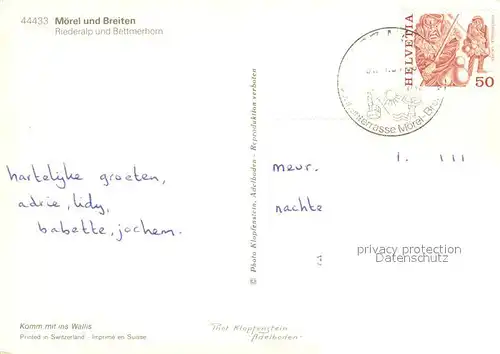 44433 Mörel und Breiten
Riederalp und Bettmerhorn
HELVETIA
50
terrasse Mörel-Brei
hartelijke groeten,
adrie, lidy,
babette, jochem.
© Photo Klopfenstein, Adelboden - Reproduktion verboten
meur.
nachte
privacy protection
Datenschutz
Komm mit ins Wallis
Printed in Switzerland - Imprimé en Suisse
Phot Klopfenstein
"Adelboden"